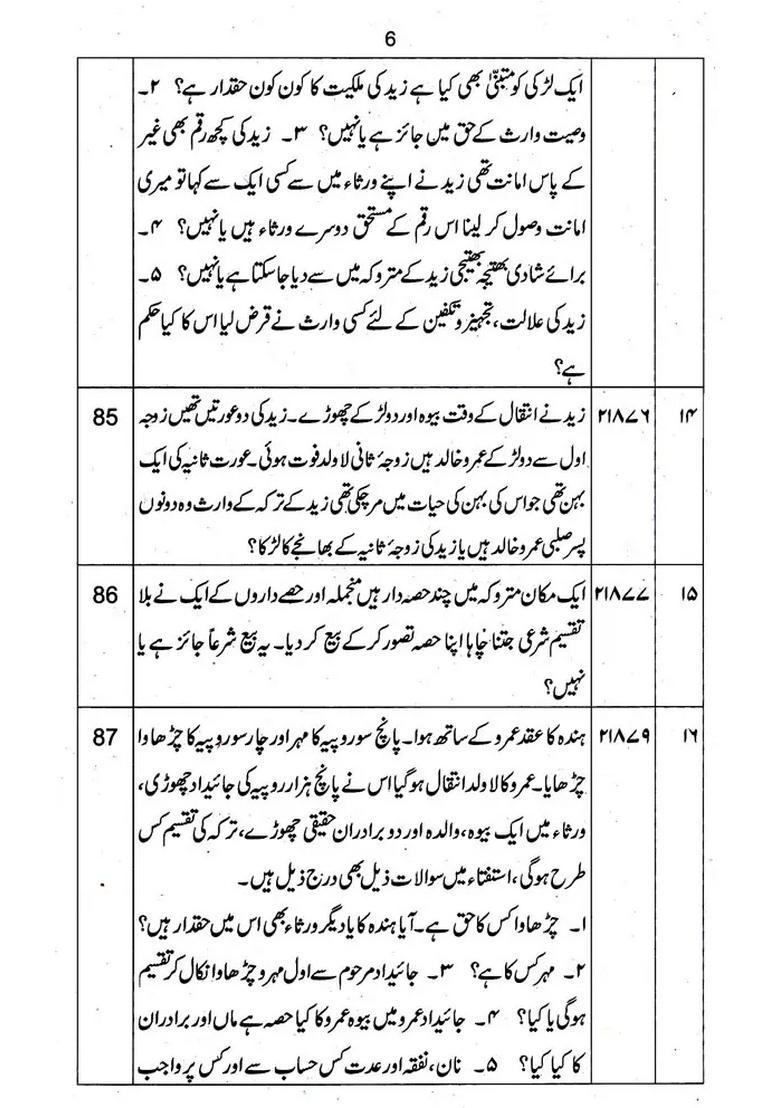 6
ایک لڑکی کو متبنّٰی بھی کیا ہے زید کی ملکیت کا کون کون حقدار ہے؟ ۲۔
وصیت وارث کے حق میں جائز ہے یا نہیں؟ ۳۔ زید کی کچھ رقم بھی غیر
کے پاس امانت تھی زید نے اپنے ورثاء میں سے کسی ایک سے کہا تو میری
امانت وصول کر لینا اس رقم کے مستحق دوسرے ورثاء ہیں یا نہیں؟ ۴۔
برائے شادی بھتیجہ بھتیجی زید کے متروکہ میں سے دیا جا سکتا ہے یا نہیں؟ ۵۔
زید کی علالت، تجہیز و تکفین کے لئے کسی وارث نے قرض لیا اس کا کیا حکم
ہے؟
۱۴ ۲۱۸۷۶ زید نے انتقال کے وقت بیوہ اور دو لڑکے چھوڑے۔ زید کی دو عورتیں تھیں زوجہ 85
اول سے دو لڑکے عمرو خالد ہیں زوجۂ ثانی لا ولد فوت ہوئی۔ عورت ثانیہ کی ایک
بہن تھی جو اس کی بہن کی حیات میں مر چکی تھی زید کے ترکہ کے وارث وہ دونوں
پسر صلبی عمرو خالد ہیں یا زید کی زوجۂ ثانیہ کے بھانجے کا لڑکا؟
۱۵ ۲۱۸۷۷ ایک مکان متروکہ میں چند حصہ دار ہیں منجملہ اور حصے داروں کے ایک نے بلا 86
تقسیم شرعی جتنا چاہا اپنا حصہ تصور کر کے بیع کر دیا۔ یہ بیع شرعاً جائز ہے یا
نہیں؟
۱۶ ۲۱۸۷۹ ہندہ کا عقد عمرو کے ساتھ ہوا۔ پانچ سو روپیہ کا مہر اور چار سو روپیہ کا چڑھاوا 87
چڑھایا۔ عمرو کا لا ولد انتقال ہو گیا اس نے پانچ ہزار روپیہ کی جائیداد چھوڑی،
ورثاء میں ایک بیوہ، والدہ اور دو برادران حقیقی چھوڑے، ترکہ کی تقسیم کس
طرح ہو گی، استفتاء میں سوالات ذیل بھی درج ذیل ہیں۔
۱۔ چڑھاوا کس کا حق ہے۔ آیا ہندہ کا یا دیگر ورثاء بھی اس میں حقدار ہیں؟
۲۔ مہر کس کا ہے؟ ۳۔ جائیداد مرحوم سے اول مہر و چڑھاوا نکال کر تقسیم
ہو گی یا کیا؟ ۴۔ جائیداد عمرو میں بیوہ عمرو کا کیا حصہ ہے ماں اور برادران
کا کیا کیا؟ ۵۔ نان، نفقہ اور عدت کس حساب سے اور کس پر واجب